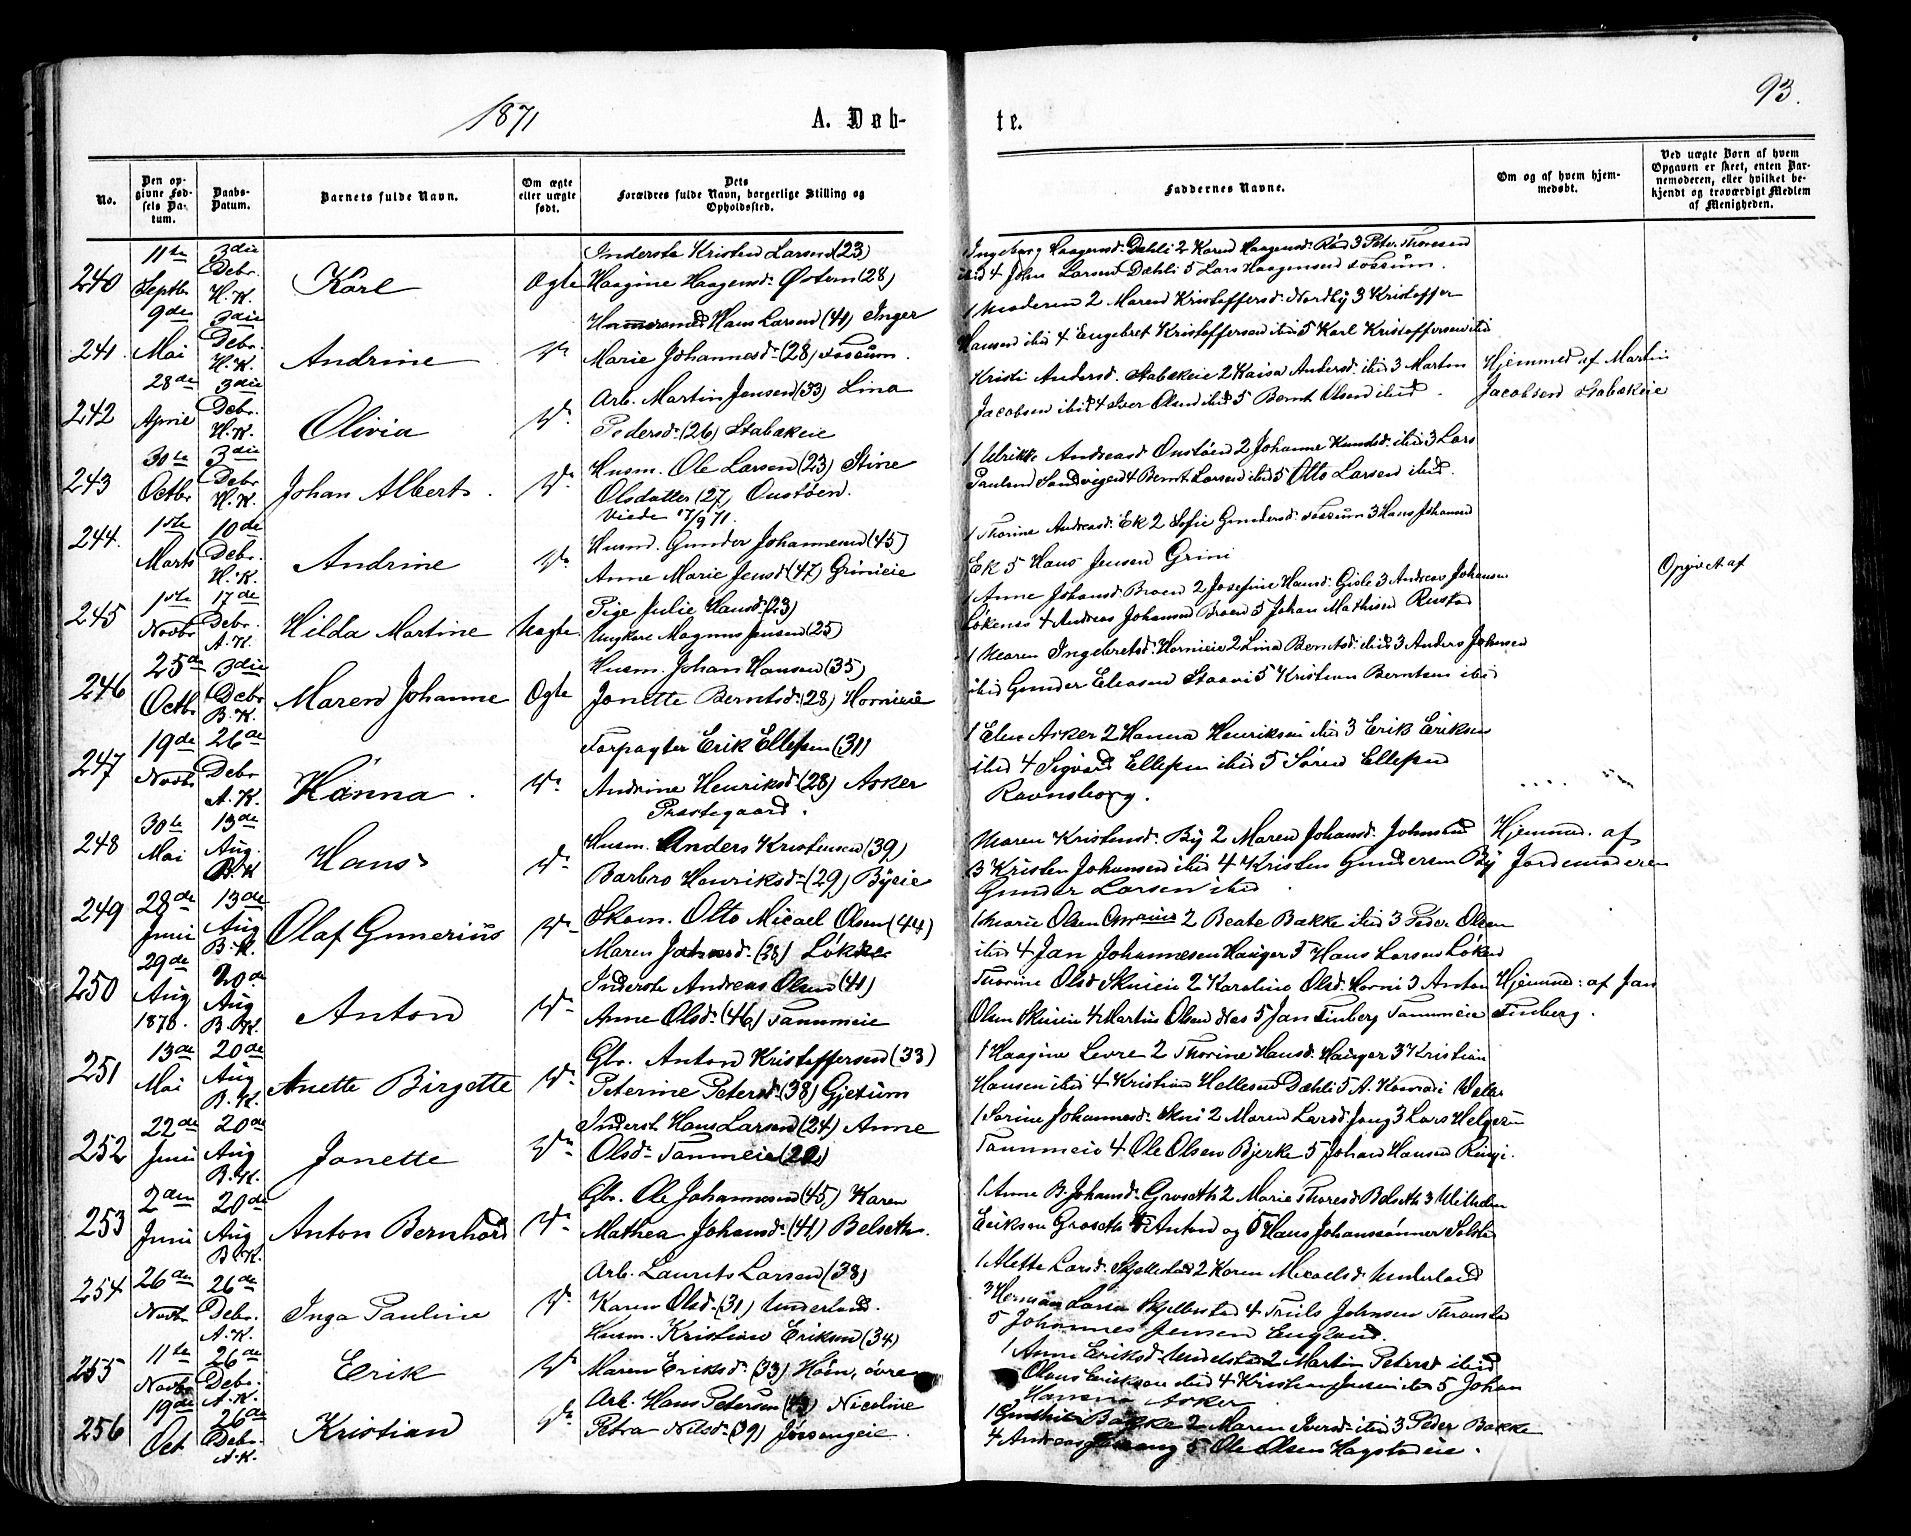 1871
A. Døb-
te.
93.
No.
Den op-
givne Fød-
sels Da-
tum.
Daabs-
Datum.
Barnets fulde Navn.
Om ægte
eller uægte
født.
Dets
Forældres fulde Navn, borgerlige Stilling og
Opholdssted.
Faddernes Navne.
Om og af hvem hjem-
medøbt.
Ved uægte Børn af hvem
Opgaven er skeet, enten Bar-
nemoderen, eller hvilket be-
kjendt og troværdigt Medlem
af Menigheden.
240 11te Septbr 3die Debr. H.K. Karl Ogte Inderste Kristen Larsen (23)
Haagine Haagensd. Østern (28)
Ingeborg Haagensd. Dæhli 2 Karen Haagensd. 3 Peter Thoresen
ibid 4 Johs Larsen Dæhli 5 Lars Haagensen Fossum.
241. 9de Mai 3die Debr. H.K. Andrine Do Hans Larsen (41) Inger
Marie Johannesd. (28) Fossum.
1 Moderen 2 Maren Kristoffersd. Nordby 3 Kristoffer
Hansen ibid 4 Engebret Kristoffersen ibid 5 Karl Kristoffersen ibid
242 28de April 3die Debr. H.K. Olivia Do Arb. Martin Jensen (33) Lina
Pedersd. (26) Stabækeie
Kristi Andersd. Stabækeie 2 Kaisa Andersd. ibid 3 Marten
Jacobsen ibid 4 Iver Olsen ibid 5 Bernt Olsen ibid.
Hjemmed af Martin
Jacobsen Stabækeie
243 30te Octbr 3die Debr H.K. Johan Albert. Do Husm. Ole Larsen (23) Stine
Olsdatter (27) Oustøen.
Viede 17/9 71.
1 Ulrikke Andreasd Oustøen 2 Johanne Knudsd. ibid 3 Lars
Paulsen Sandvigen 4 Bernt Larsen ibid 5 Otto Larsen ibid.
244. 1ste Marts 10de Debr. H.K. Andrine Do Husm. Gunder Johannesen (45)
Anne Marie Jensd. (47) Grinieie
1 Thorine Andreasd. Ek 2 Sofie Gundersd. Fossum 3 Hans Johansen
Ek 5 Hans Jensen Grini
245 1ste Novbr 17de Debr. A.K. Hilda Martine Uægte. Pige Julie Hansd. (23)
Ungkarl Magnus Jensen (25)
1 Anne Johansd. Braen 2 Josefine Hansd. Gisle 3 Andreas Johansen
Løkenes 4 Andreas Johansen Braen 5 Johan Mathisen Rustad
Opgivet af
246 25de Octbr 3die Debr B.K. Maren Johanne Ogte Husm. Johan Hansen (35)
Jonette Berntsd. (28) Hornieie
1 Maren Ingebretsd. Hornieie 2 Lina Berntsd. ibid 3 Anders Johnsen
ibid Gunder Eliasen Staavi 5 Kristian Berntsen ibid
247 19de Novbr 26de Debr A.K. Hanna. Do Forpagter Erik Ellefsen (31)
Andrine Henriksd. (28) Asker
Prastegaard.
1 Elen Asker 2 Hanna Henriksen ibid 3 Erik Eriksen
ibid 4 Sigvard Ellefsen ibid 5 Søren Ellefsen
Ravnsborg.
248 30te Mai 13de Aug. B.K. Hans Do Husm. Anders Kristensen (39)
Barbro Henriksd. (29) Byeie
Maren Kristensd. By 2 Maren Johansd. Johnsrud
3 Kristen Johansen ibid 4 Kristen Gundersen By
Gunder Larsen ibid.
Hjemmed. af
Jordemoderen
249 28de Juni 13de Aug B.K. Olaf Gunerius Do Skom. Otto Micael Olsen (44)
Maren (38) Løkke
1 Marie Olsen 2 Beate Bakke ibid 3 Peder Olsen
ibid 4 Jan Johannesen Hauger 5 Hans Larsen Løken
250 29de Aug 1870. 20de Aug B.K. Anton Do Inderste Andreas Olsen (41)
Anne Olsd. (46) Tanumeie
Thorine Olsd Skuieie 2 Karoline Olsd. Horni 3 Anton
Olsen Skuieie 4 Martin Olsen Nes 5 Jan Finberg Tanumeie
Hjemmed: af Jan
Finberg.
251 13de Mai 20de Aug B.K. Anette Birgette Do Gbr. Anton Kristoffersen (33)
Peterine Petersd. (38) Gjetum
1 Haagine Levre 2 Thorine Hansd. Hauger 3 Kristian
Hansen ibid 4 Kristian Hellesen Dæhli 5 A.
252 22de Juni 20de Aug B.K. Jonette Do Inderst Hans Larsen (24) Anne
Olsd. Tanumeie (22)
1 Sørine Johannesd. Skui 2 Maren Larsd. Jong 3 Lars Helgesen
Tanumeie 4 Ole Olsen Bjerke 5 Johan Hansen Ringi.
253 2den Juni 20de Aug B.K. Anton Bernhard Do Gbr. Ole Johannesen (45) Karen
Mathea Johansd. (41) Belseth.
1 Anne B. Johansd. Groseth 2 Marie Thoresd Belseth 3 Wilhelm
Eriksen Groseth 4 Anton og 5 Hans Johanssønner
254 26de Novbr 26de Debr. A.K. Inga Pauline Do Arb. Laurits Larsen (38)
Karen Olsd. (31) Underland.
1 Alette Larsd. Skjellestad 2 Karen Micaelsd. Underland
3 Herman Larsen Skjellestad 4 Truls Johnsen
5 Johannes Jensen England.
255 11te Novbr 26de Debr. A.K. Erik Do Husm. Kristian Eriksen (34)
Maren Eriksd. (33) Høn, øvre
1 Anne Eriksd. 2 Martin Petersd ibid
Olaus Eriksen ibid 4 Kristian Jensen ibid 5 Johan
Hansen Asker
256 19de Oct 26de Debr. A.K. Kristian Do Arb. Hans Petersen Nicoline
Petra Nilsd. (39) Jørsengeie.
1 Bakke 2 Maren Iversd. ibid 3 Peder Bakke
4 Andreas 5 Ole Olsen Hagstadeie.